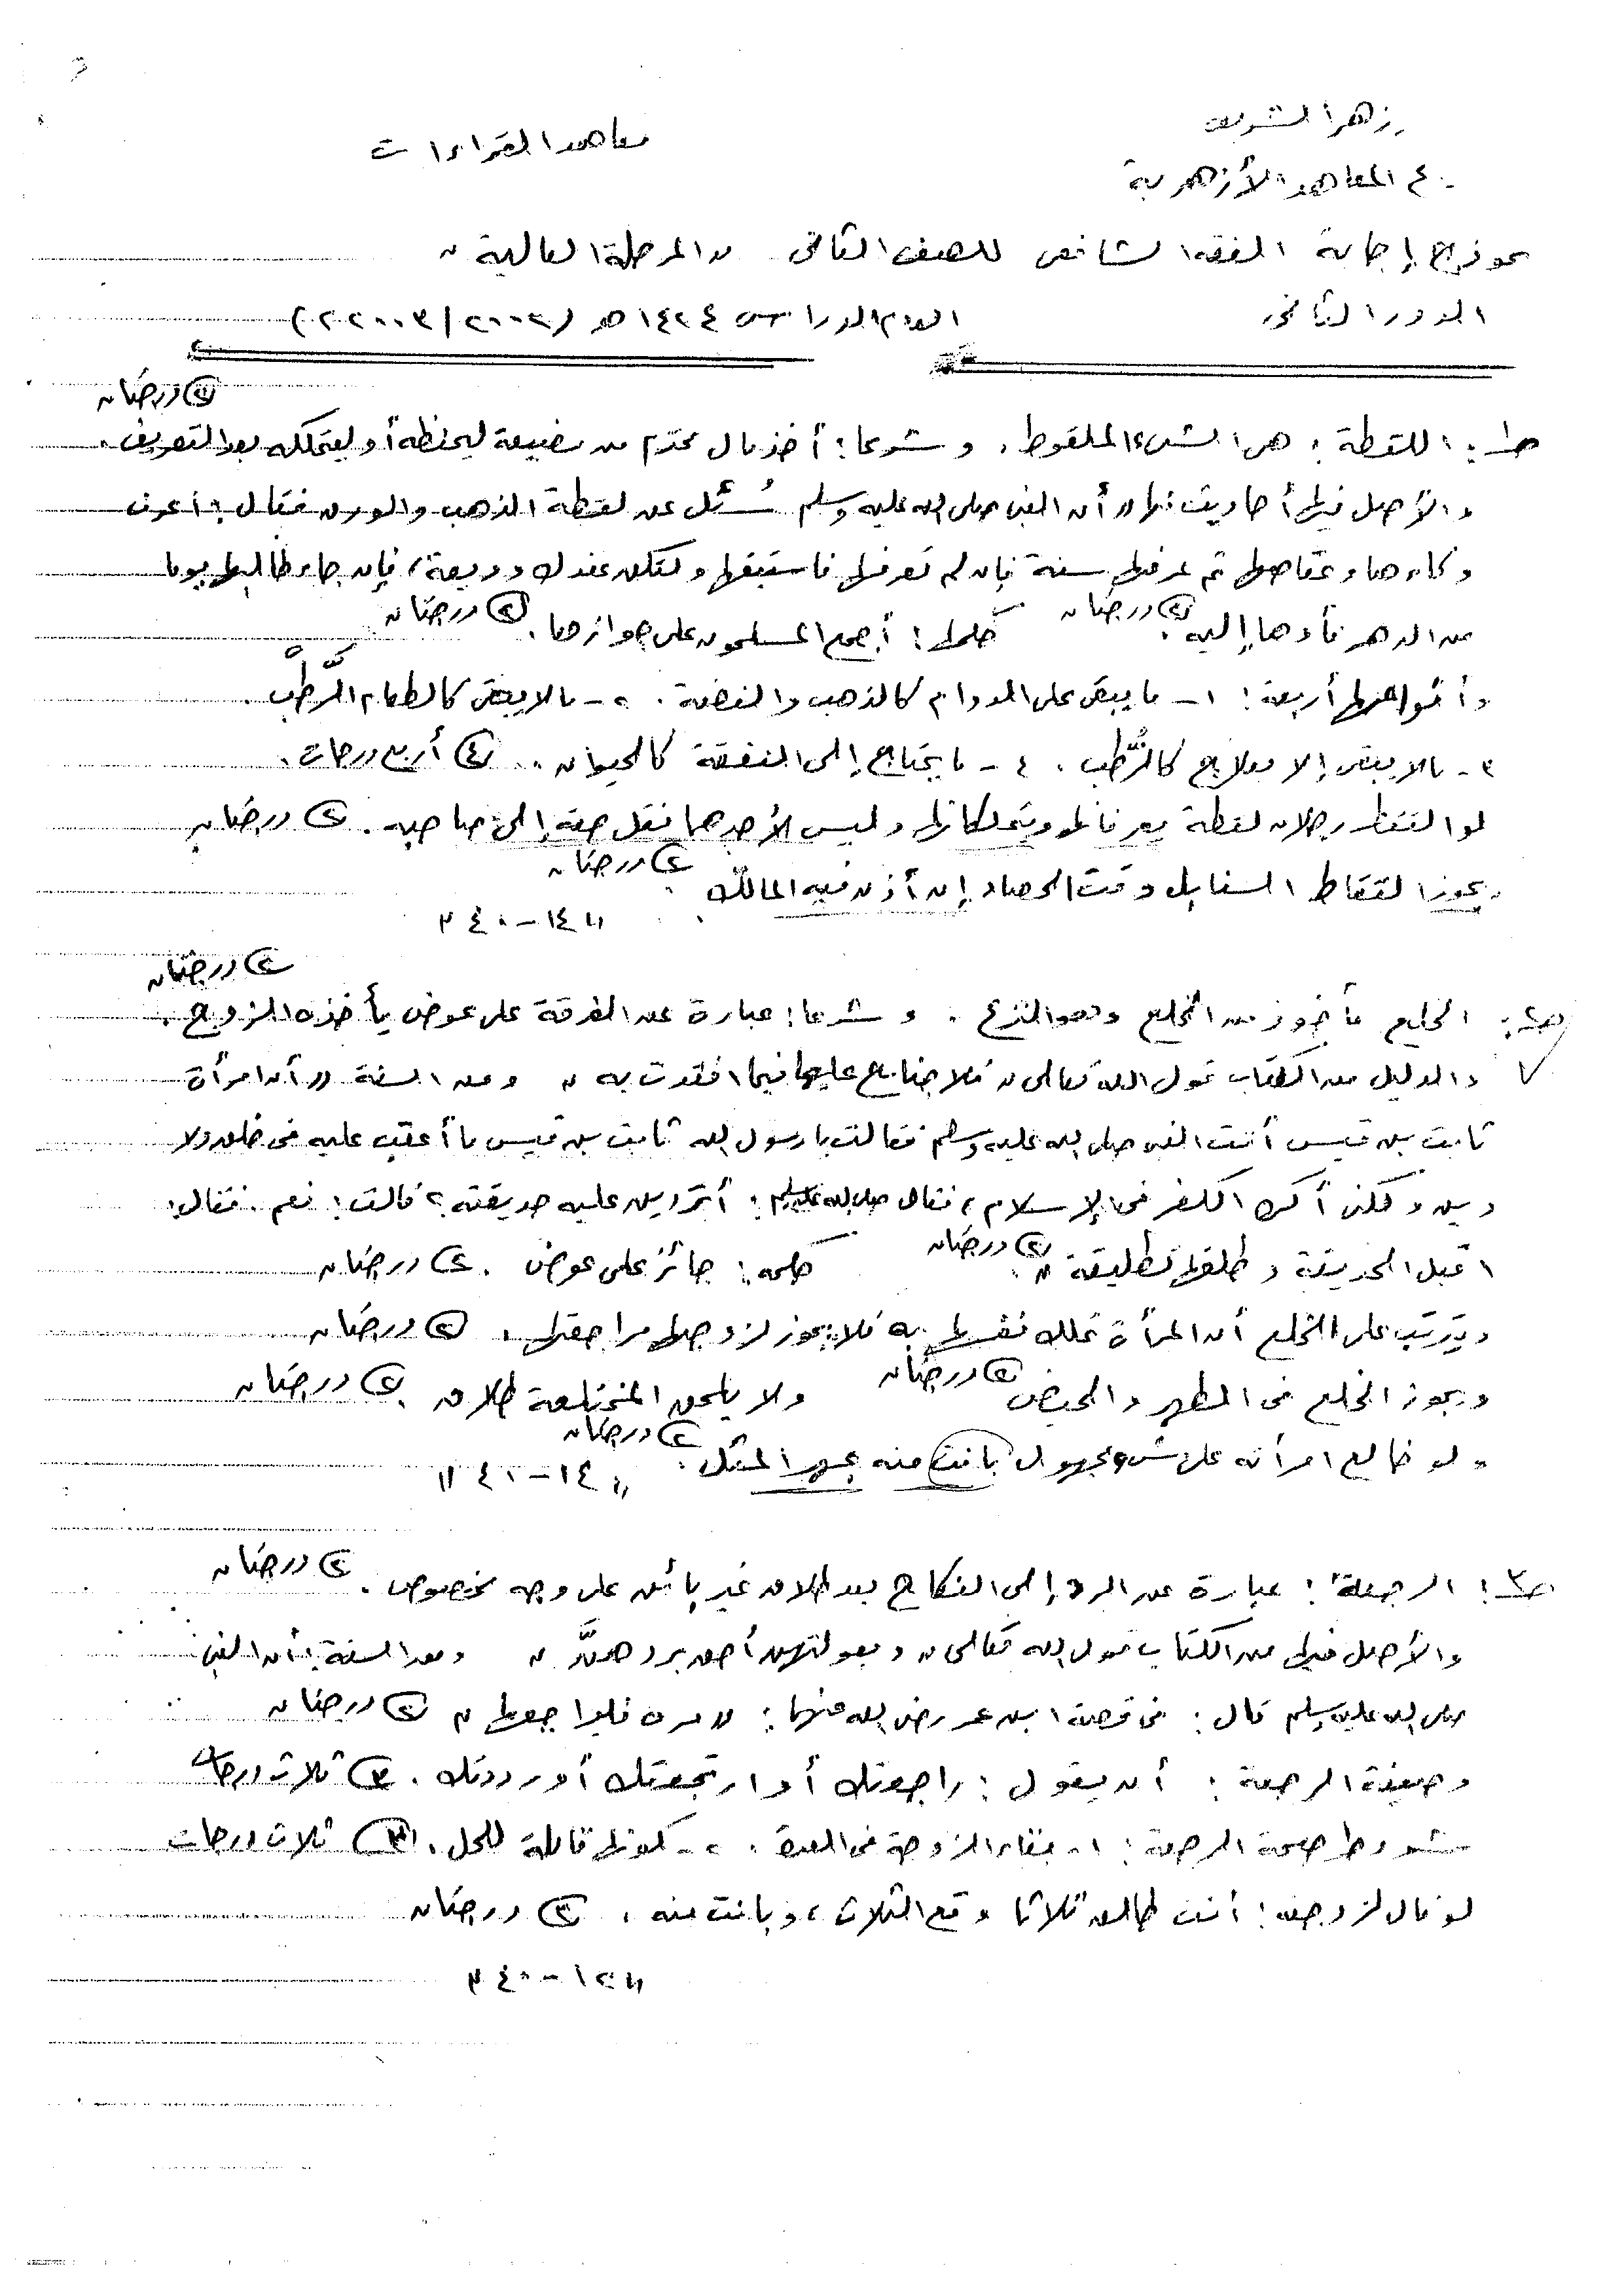 زهر الشريف
معاهد القراءات
ع المعاهد الأزهرية
نموذج إجابة الفقه الشافعى للصف الثانى "المرحلة العالية"
الدور الثانى
العام الدراسى ١٤٢٤ هـ (٢٠٠٢/٢٠٠٣)
٢ درجتان
جـ١: اللقطة: هى الشىء الملقوط. وشرعا: أخذ مال محترم من مضيعة ليحفظه أو ليتملكه بعد التعريف.
والأصل فيها أحاديث منها "أن النبى صلى الله عليه وسلم سُئل عن لقطة الذهب والورق فقال: أعرف
وكاءها وعفاصها ثم عرفها سنة فإن لم تعرفها فاستنفقها ولتكن عندك وديعة، فإن جاء طالبها يوما
من الدهر فأدها إليه. ٢ درجتان حكمها: أجمع المسلمون على جوازها. ٢ درجتان
وأنواعها أربعة: ١- ما يبقى على الدوام كالذهب والفضة. ٢- مالا يبقى كالطعام الرَّطْب.
٣- مالا يبقى إلا بعلاج كالرُّطب. ٤- ما يحتاج إلى النفقة كالحيوان. ٤ أربع درجات.
لو التقط رجلان لقطة يعرفانها ويتملكانها وليس لأحدهما نقل حقه إلى صاحبه. ٢ درجتان
يجوز التقاط السنابل وقت الحصاد إن أذن فيه المالك. ٢ درجتان
"١٤-٤٠"
٢ درجتان
جـ٢: الخلع مأخوذ من الخلع وهو النزع. وشرعا: عبارة عن الفرقة على عوض يأخذه الزوج.
والدليل من الكتاب قول الله تعالى "فلا جناح عليهما فيما افتدت به" ومن السنة "أن امرأة
ثابت بن قيس أتت النبى صلى الله عليه وسلم فقالت يا رسول الله ثابت بن قيس ما أعتب عليه فى خلق ولا
دين ولكنى أكره الكفر فى الإسلام، فقال صلى الله عليه وسلم: أتردين عليه حديقته؟ قالت: نعم. فقال:
اقبل الحديقة وطلقها تطليقة". ٢ درجتان حكمه: جائز على عوض. ٢ درجتان
ويترتب على الخلع أن المرأة تملك نفسها به فلا يجوز لزوجها مراجعتها. ٢ درجتان
ويجوز الخلع فى الطهر والحيض ٢ درجتان ولا يلحق المختلعة طلاق. ٢ درجتان
ولو خالع امرأته على شىء مجهول بانت منه بمهر المثل. ٢ درجتان
"١٤-٤٠"
جـ٣: الرجعة: عبارة عن الرد إلى النكاح بعد طلاق غير بائن على وجه مخصوص. ٢ درجتان
والأصل فيها من الكتاب قول الله تعالى "وبعولتهن أحق بردهنَّ" ومن السنة: أن النبى
صلى الله عليه وسلم قال: فى قصة ابن عمر رضى الله عنهما: "مره فليراجعها" ٢ درجتان
وصيغة الرجعة: أن يقول: راجعتك أو ارتجعتك أو رددتك. ٣ ثلاث درجات
شروط صحة الرجعة: ١- بقاء الزوجة فى العدة. ٢- كونها قابلة للحل. ٣ ثلاث درجات
لو قال لزوجته: أنت طالق ثلاثا وقع الثلاث، وبانت منه. ٢ درجتان
"١٢-٤٠"